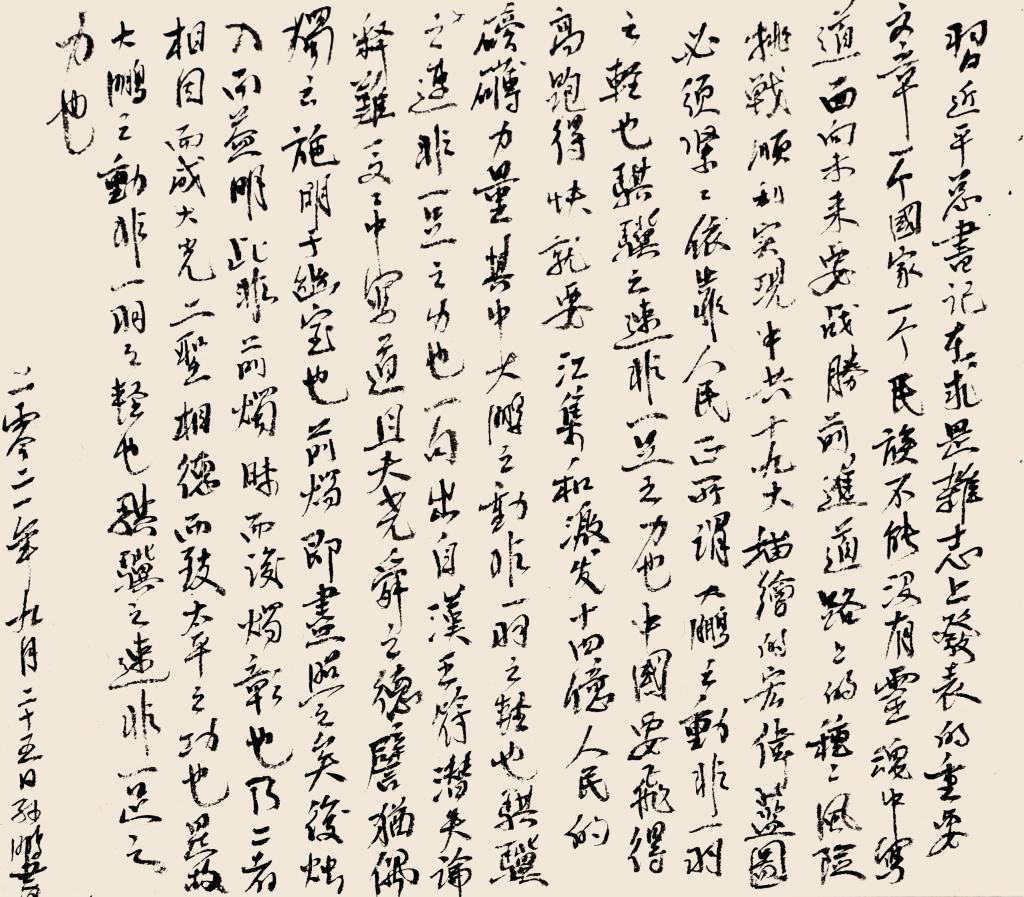 習近平总書記在求是雜志上發表的重要
文章一个國家一个民族不能没有靈魂中寫
道面向未来要战勝前進道路上的種〻風險
挑戰順利实現中共十九大描繪的宏偉藍圖
必须緊〻依靠人民正所谓大鵬之動非一羽
之輕也騏驥之速非一足之功也中國要飛得
高跑得快就要汇集和激发十四億人民的
磅礴力量其中大鵬之動非一羽之輕也騏驥
之速非一足之力也一句出自漢王符潜夫論
釋難一文〻中寫道且夫堯舜之德譬猶偶
燭之施明于幽室也前燭即盡照之矣後烛
入而益明此非前燭昧而後燭彰也乃二者
相因而成大光二聖相德而致太平之功也是故
大鵬之動非一羽之輕也騏驥之速非一足之
力也
二零二一年九月二十五日孙鵬書